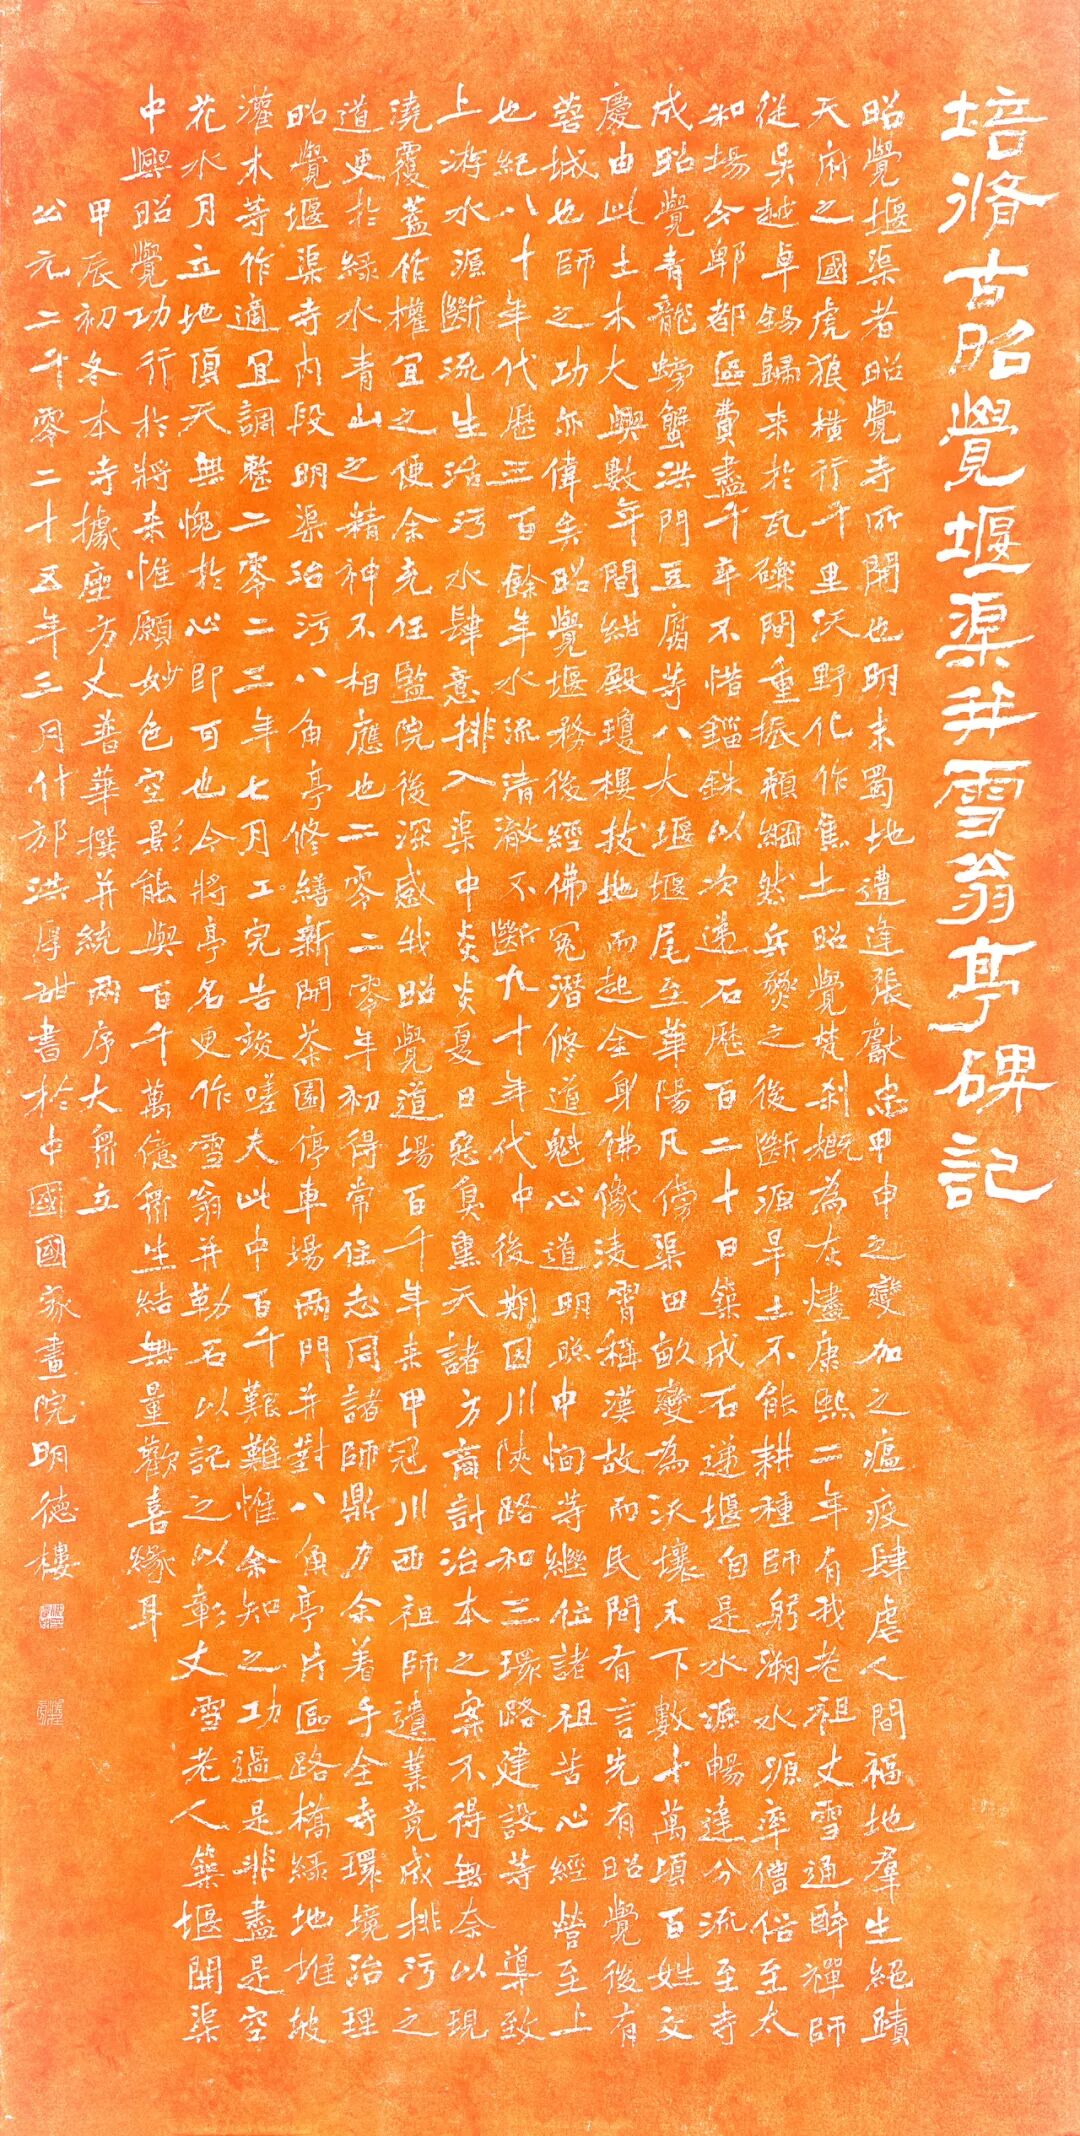 培脩古昭覺堰渠并雪翁亭碑記
昭覺堰渠者昭覺寺所開也明末蜀地遭逢張獻忠甲申之變加之瘟疫肆虐人間福地羣生絕蹟
天府之國虎狼橫行千里沃野化作焦土昭覺梵剎概為灰燼康熙二年有我老祖丈雪通醉禪師
從吳越卓錫歸來於瓦礫間重振頹綱然兵燹之後斷源旱土不能耕種師躬溯水源率僧俗至太
和場今郫都區費盡千辛不惜錙銖以次遞石歷百二十日築成石遞堰自是水源暢達分流至寺
成昭覺青龍螃蟹洪門豆腐等八大堰堰尾至華陽凡傍渠田畝變為沃壤不下數十萬頃百姓交
慶由此土木大興數年間紺殿瓊樓拔地而起金身佛像凌霄稱漢故而民間有言先有昭覺後有
蓉城也師之功亦偉矣昭覺堰務後經佛冤潛修道魁心道明照中恂等繼位諸祖苦心經營至上
也紀八十年代歷三百餘年水流清澈不斷九十年代中後期因川陝路和三環路建設等導致
上游水源斷流生活污水肆意排入渠中炎炎夏日惡臭熏天諸方商計治本之案不得無奈以現
澆覆蓋作權宜之便余充任監院後深感我昭覺道場百千年來甲冠川西祖師遺業竟成排污之
道更於綠水青山之精神不相應也二零二零年初得常住志同諸師鼎力余着手全寺環境治理
昭覺堰渠寺內段明渠治污八角亭修繕新開茶園停車場兩門并對八角亭片區路橋綠地堆坡
灌木等作適宜調整二零二三年七月工完告竣嗟夫此中百千艱難惟余知之功過是非盡是空
花水月立地頂天無愧於心即可也今將亭名更作雪翁并勒石以記之以彰丈雪老人築堰開渠
中興昭覺功行於將來惟願妙色空影能與百千萬億眾生結無量歡喜緣耳
甲辰初冬本寺據座方丈普華撰并統兩序大眾立
公元二千零二十五年三月什邡洪厚甜書於中國國家畫院明德樓